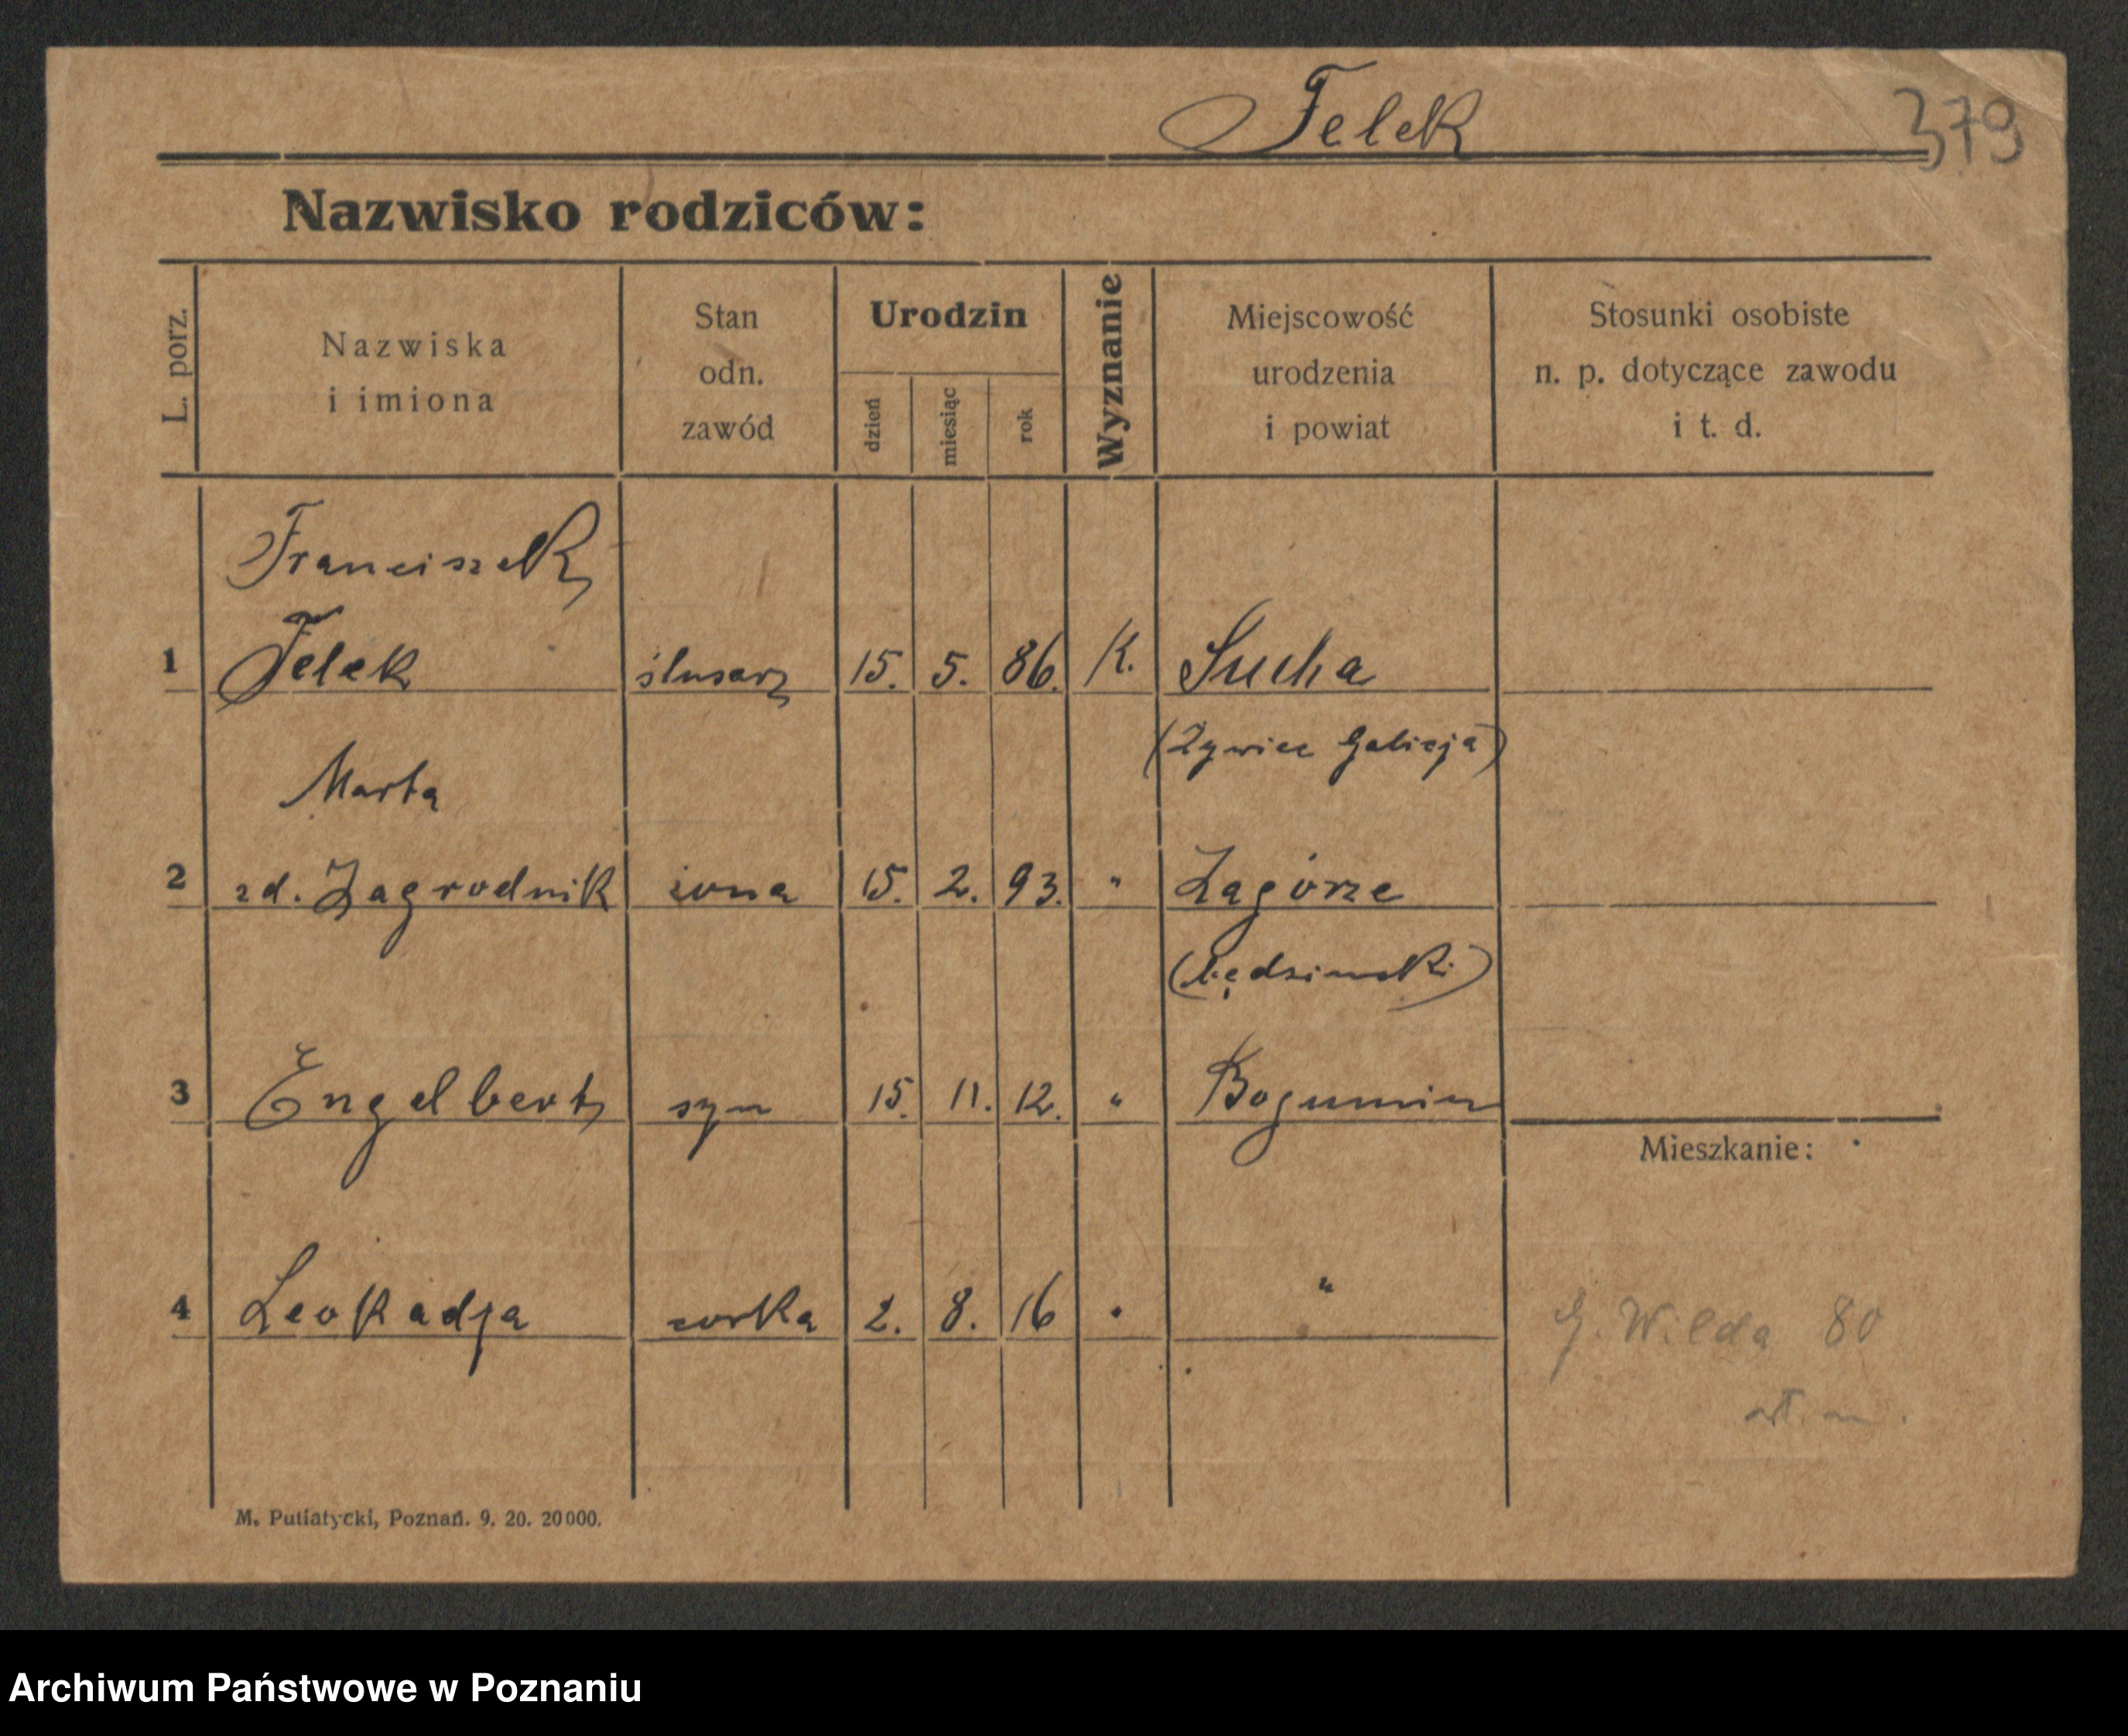 Felek
379
Nazwisko rodziców:
L. porz.
Nazwiska
i imiona
Stan
odn.
zawód
Urodzin
dzień
miesiąc
rok
Wyznanie
Miejscowość
urodzenia
i powiat
Stosunki osobiste
n. p. dotyczące zawodu
i t. d.
Franciszek
1 Felek ślusarz 15. 5. 86. K. Sucha
(Żywiec Galicja)
Marta
2 zd. Zagrodnik żona 15. 2. 93. " Zagórze
(będzinski)
3 Engelbert syn 15. 11. 12. " Bogumin
Mieszkanie:
4 Leokadja corka 2. 8. 16 " "
G. Wilda 80
M. Putiatycki, Poznań. 9. 20. 20000.
Archiwum Państwowe w Poznaniu